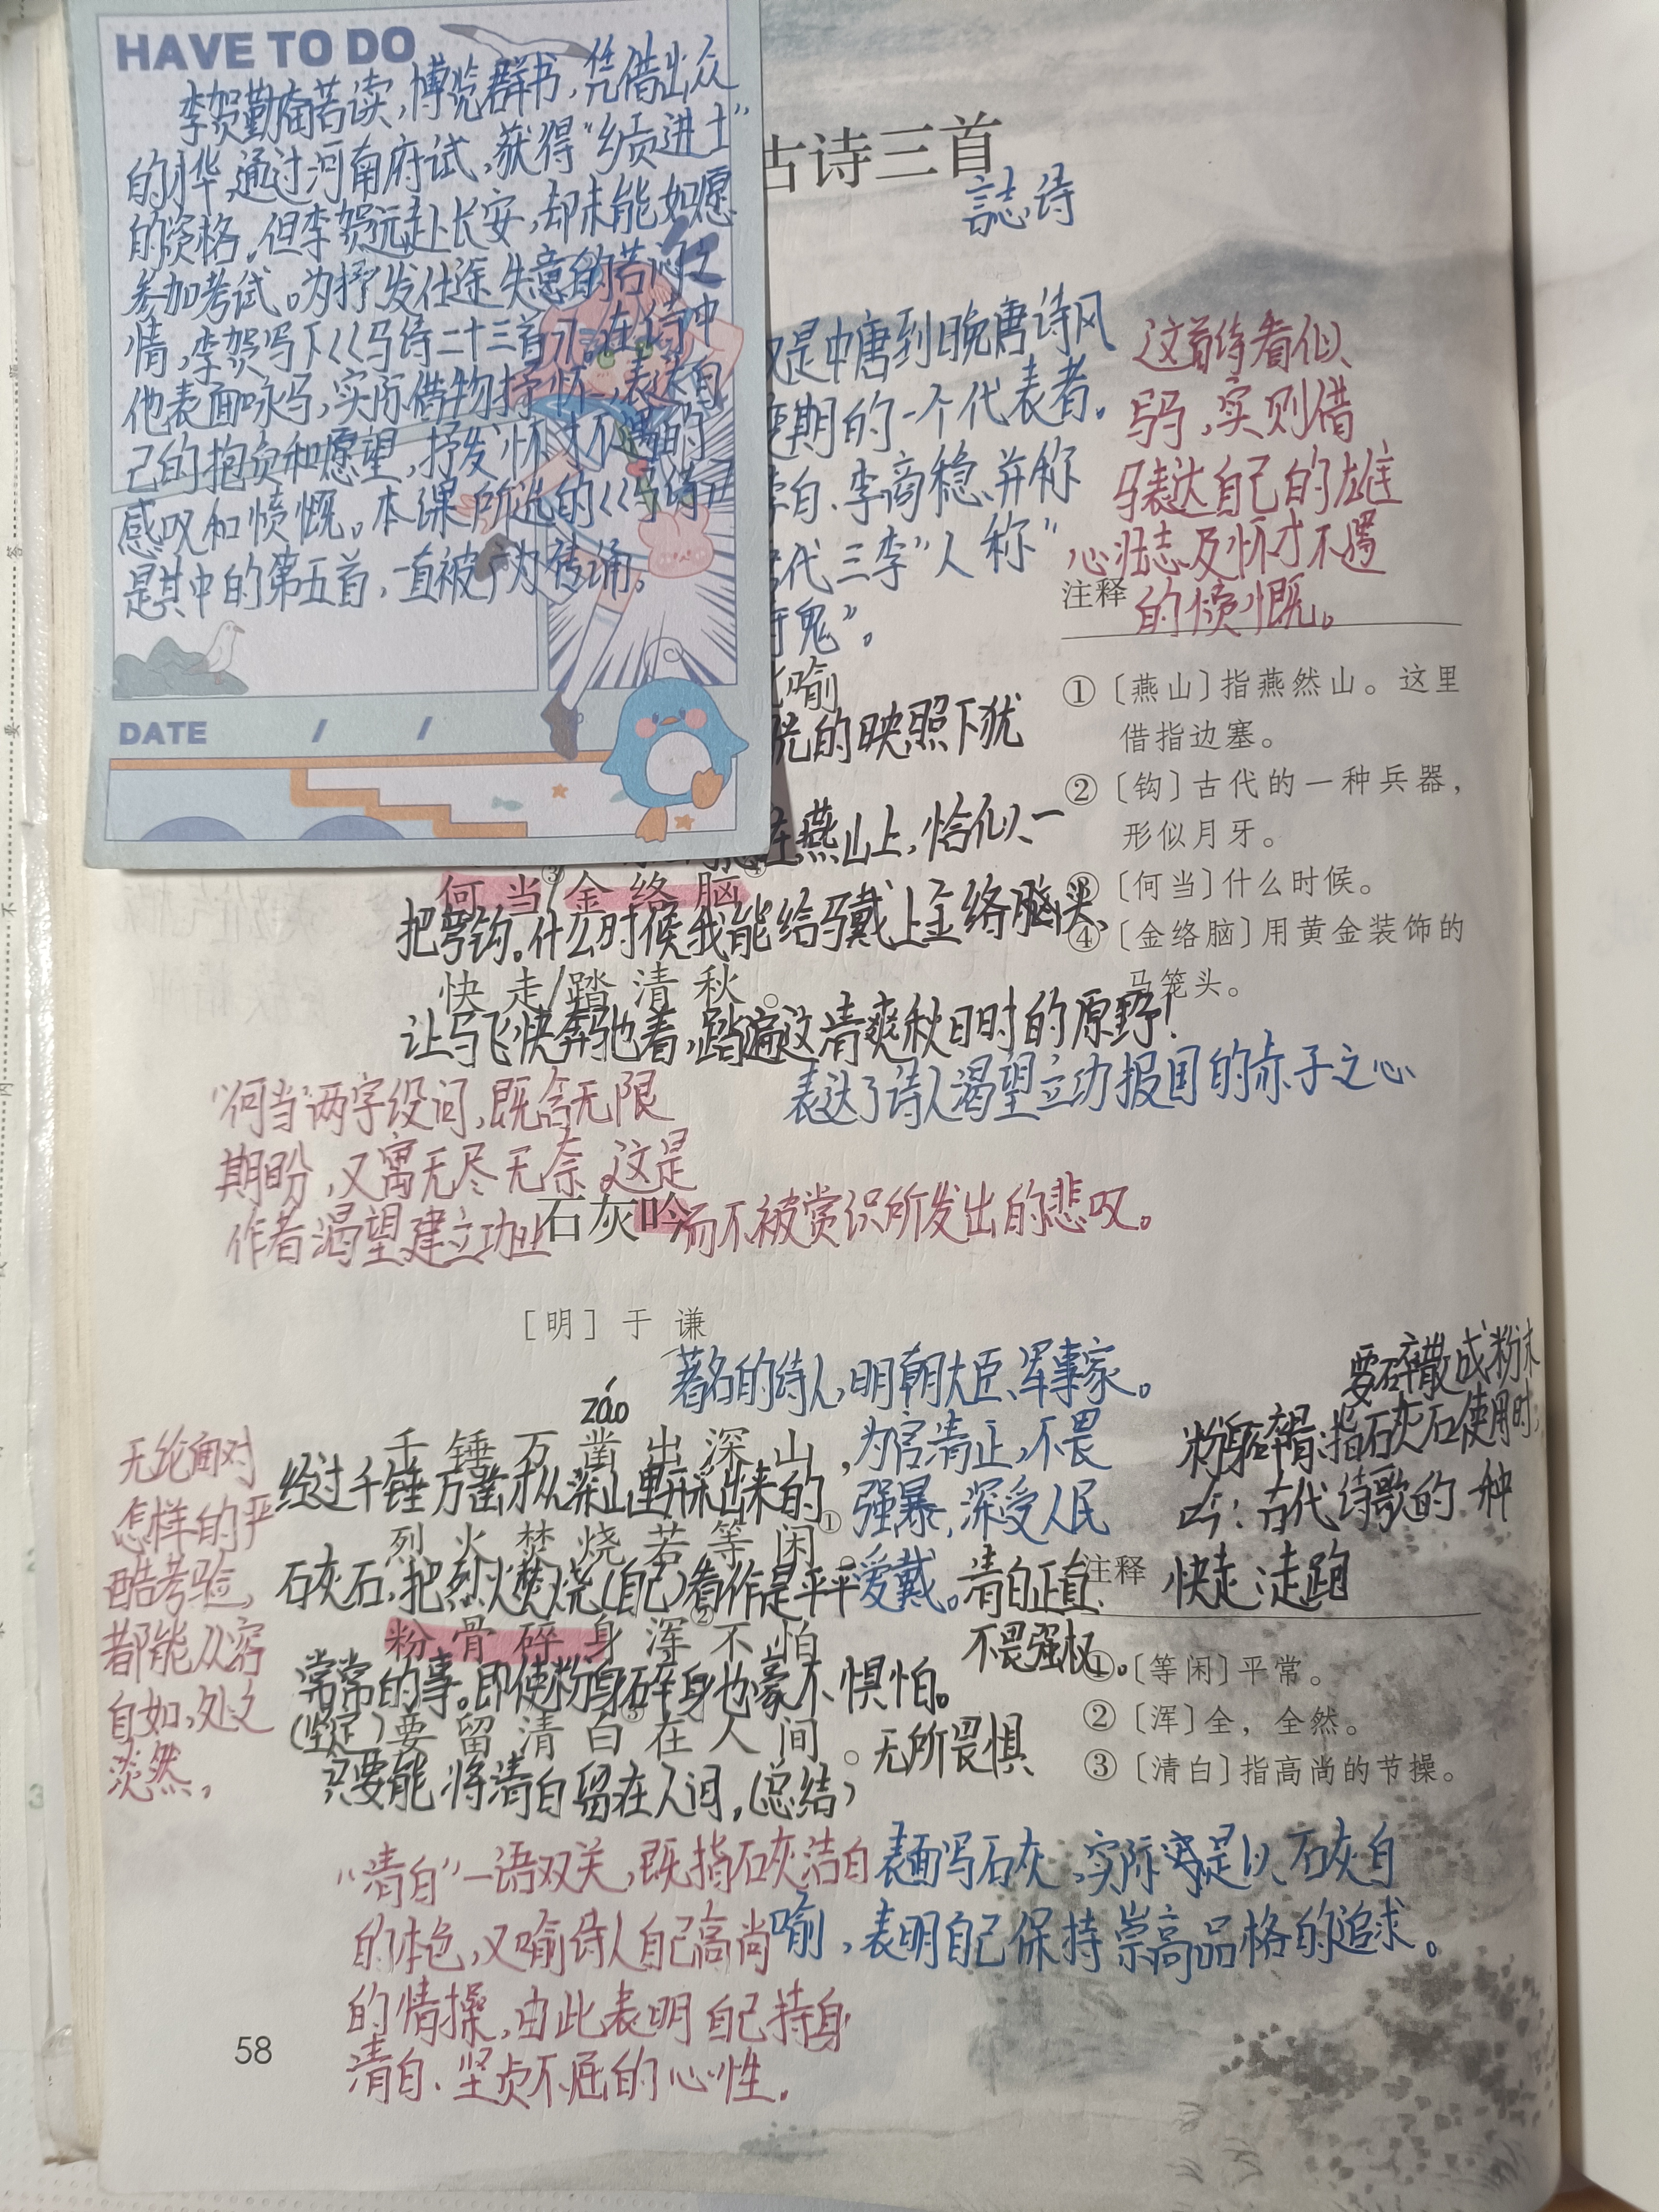 HAVE TO DO
李贺勤奋苦读，博览群书，凭借出众
的才华，通过河南府试，获得“乡贡进士”
的资格。但李贺远赴长安，却未能如愿
参加考试。为抒发仕途失意的苦闷之
情，李贺写下《马诗二十三首》。在诗中
他表面咏马，实际借物抒怀，表达自
己的抱负和愿望，抒发怀才不遇的
感叹和愤慨。本课所选的《马诗》
是其中的第五首，一直被广为传诵。
DATE / /
古诗三首
诗
是中唐到晚唐诗风
期的一个代表者。
李商稳、并称
代三李”人称“
鬼”。
喻
的映照下犹
燕山上，恰似一
这首诗看似
写马，实则借
马表达自己的雄
心壮志及怀才不遇
的愤慨。
注释
①〔燕山〕指燕然山。这里
借指边塞。
②〔钩〕古代的一种兵器，
形似月牙。
③〔何当〕什么时候。
④〔金络脑〕用黄金装饰的
马笼头。
何当/金络脑
把弯钩。什么时候我能给马戴上金络头、
快走/踏清秋。
让马飞快奔驰着，踏遍这清爽秋日时的原野！
表达了诗人渴望立功报国的赤子之心
“何当”两字设问，既含无限
期盼，又寓无尽无奈。这是
作者渴望建立功业而不被赏识所发出的悲叹。
石灰吟
［明］于谦
著名的诗人，明朝大臣、军事家。
为官清正，不畏
强暴，深受人民
爱戴。清白正直、
不畏强权。
záo
千锤万凿出深山，
经过千锤万凿才从深山里开采出来的
烈火焚烧若等闲①。
石灰石，把烈火焚烧(自己)看作是平平
粉骨碎身浑②不怕，
常常的事。即使粉身碎身也豪不惧怕。
(坚定)要留清白③在人间。无所畏惧
只要能将清白留在人间，(总结)
无论面对
怎样的严
酷考验，
都能从容
自如，处之
淡然，
要碎散成粉末
粉身碎骨：指石灰石使用时，
吟：古代诗歌的一种
快走：走跑
注释
①〔等闲〕平常。
②〔浑〕全，全然。
③〔清白〕指高尚的节操。
“清白”一语双关，既指石灰洁白
的本色，又喻诗人自己高尚
的情操，由此表明自己持身
清白、坚贞不屈的心性。
表面写石灰，实际是以石灰自
喻，表明自己保持崇高品格的追求。
58